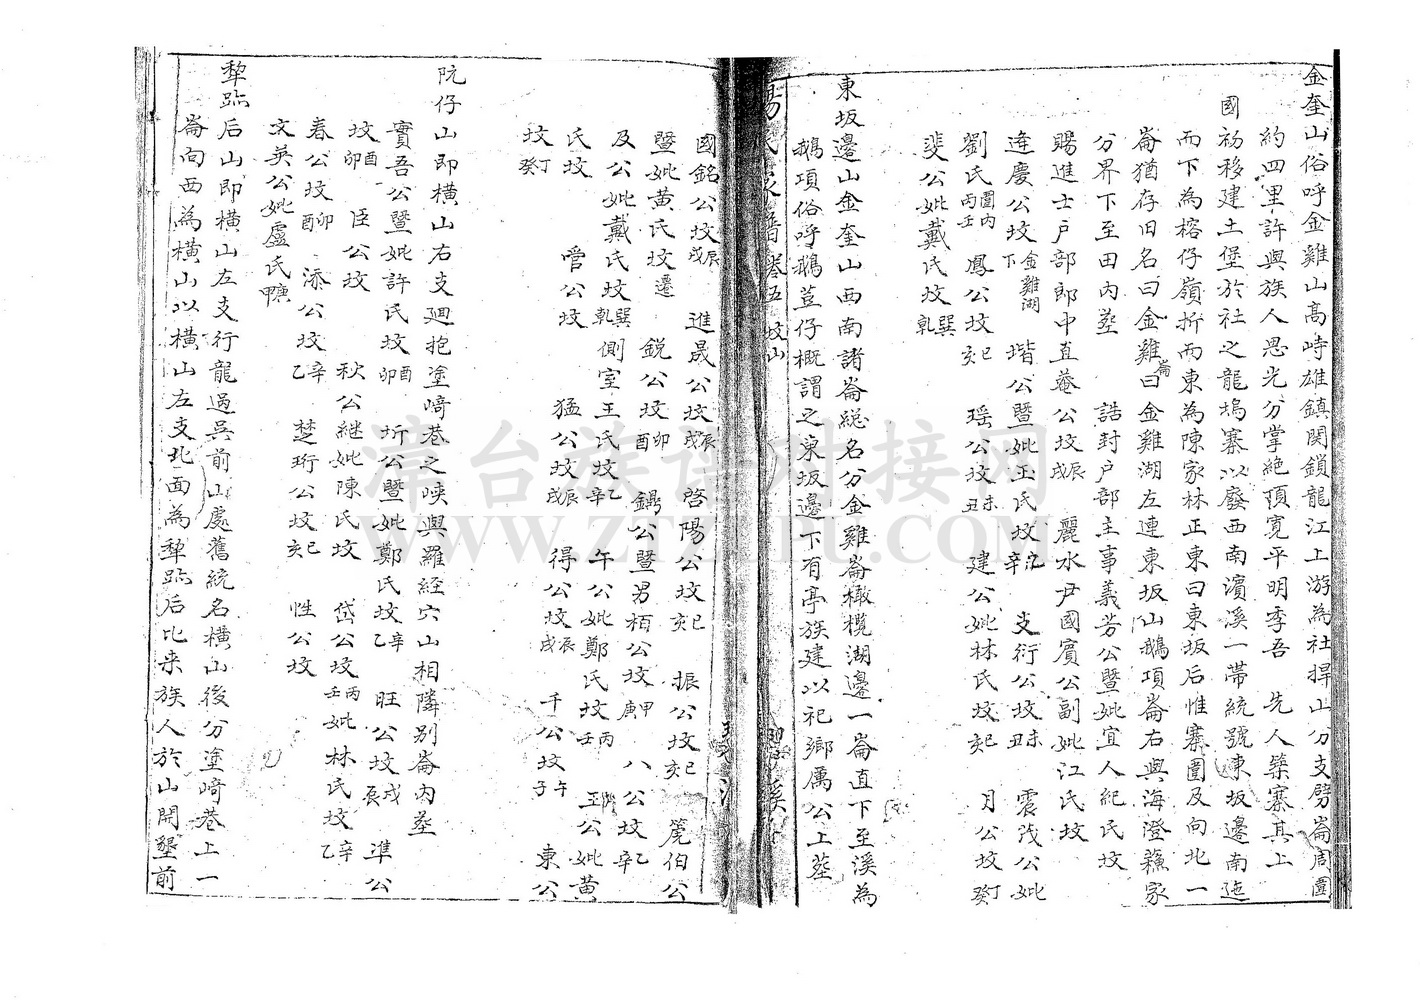 金奎山俗呼金雞山高峙雄鎮関鎖龍江上游為社捍山分支劈崙周圍
約四里許與族人思光分掌絶頂寬平明季吾 先人築寨其上
國初移建土堡於社之龍塢寨以廢西南濱溪一帯統號東坂邊南迤
而下為榕仔嶺折而東為陳家林正東曰東坂后惟寨圍及向北一
崙猶存旧名曰金雞崙曰金雞湖左連東坂山鵝項崙右與海澄蘓家
分界下至田内塟 誥封户部主事義芳公暨妣宜人紀氏坟
賜進士户部郎中直菴公坟辰戌 麗水尹國賓公副妣江氏坟
逄慶公坟金雞湖下 堦公暨妣王氏坟辛 支衍公坟未丑 震茂公妣
劉氏圍内丙壬 鳳公坟巳亥 瑶公坟未丑 建公妣林氏坟巳亥 月公坟癸丁
斐公妣戴氏坟巽乹
東坂邊山金奎山西南諸崙総名分金雞崙橄欖湖邊一崙直下至溪為
鵝項俗呼鵝荳仔概謂之東坂邊下有亭族建以祀鄉厲公上塟
楊氏家譜卷五 坟山
國銘公坟辰戌 進晟公坟辰戌 啓陽公坟巳亥 振公坟巳亥 箎伯公
暨妣黄氏坟遷 鋭公坟卯酉 公暨男栢公坟甲庚 八公坟乙辛
及公妣戴氏坟巽乹側室王氏坟乙辛 午公妣鄭氏坟丙壬 公妣黄
氏坟 管公坟 猛公坟辰戌 得公坟辰戌 千公坟午子 東公
坟癸丁
阮仔山即横山右支廻抱塗﨑巷之峽與羅經穴山相隣别崙内塟
實吾公暨妣許氏坟酉卯 圻公暨妣鄭氏坟辛乙 旺公坟戌辰 準公
坟酉卯 臣公坟 秋公継妣陳氏坟 岱公坟丙壬妣林氏坟辛乙
春公坟卯酉 添公坟辛乙 楚珩公坟巳亥 性公坟
文英公妣盧氏
犂跡后山即横山左支行龍過吳前山處舊統名横山後分塗﨑巷上一
崙向西為横山以横山左支北面為犂跡后比来族人於山開墾前